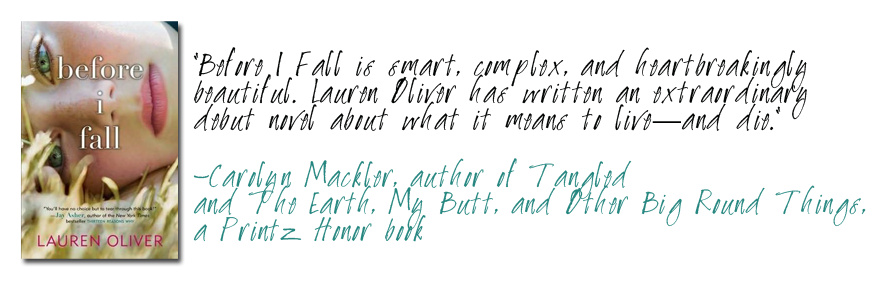 before
i
fall
"You'll have no choice but to tear through this book."
—Jay Asher, author of the New York Times
bestseller THIRTEEN REASONS WHY
LAUREN OLIVER
"Before I Fall is smart, complex, and heartbreakingly
beautiful. Lauren Oliver has written an extraordinary
debut novel about what it means to live—and die."
-Carolyn Mackler, author of Tangled
and The Earth, My Butt, and Other Big Round Things,
a Printz Honor book